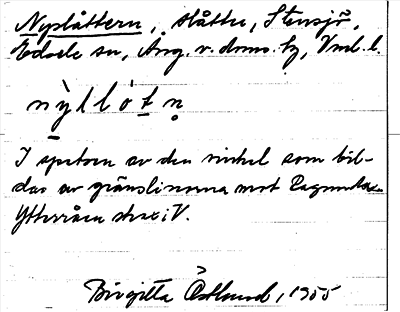 Nyslåttern, slåtter, Stensjö,
Edsele sn, Ång. v. doms. tg, Vnl. l.
nỳllótn
I spetsen av den vinkel som bil-
das av gränslinorna mot Ragunda o.
Ytterråsen strax i V.
Birgitta Östlund, 1955